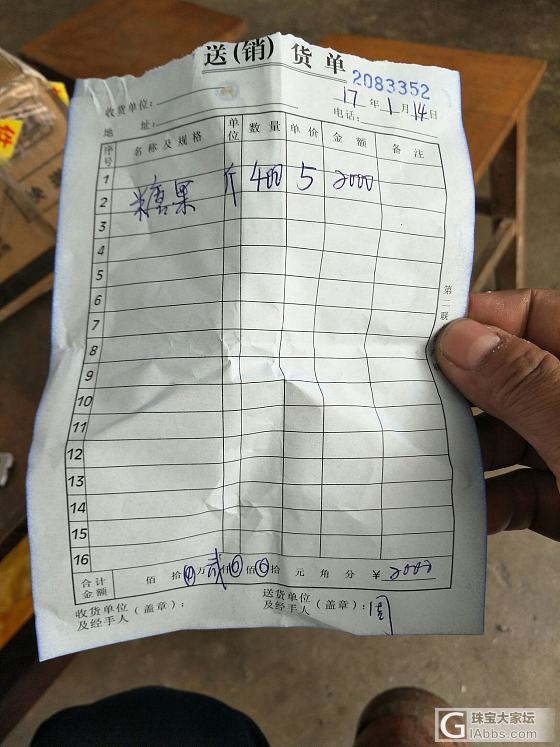 送(销)货单
2083352
收货单位:
17年1月14日
地 址:
电话:
序号 名称及规格 单位 数量 单价 金额 备注
1 糖果 斤 400 5 2000
2
3
4
5
6
7
8
9
10
11
12
13
14
15
16
合计金额 佰 拾 0 万 贰 仟 0 佰 0 拾 元 角 分 ¥ 2000
收货单位及经手人(盖章):
送货单位及经手人(盖章):周
第二联
珠宝大家坛
GIabbs.com